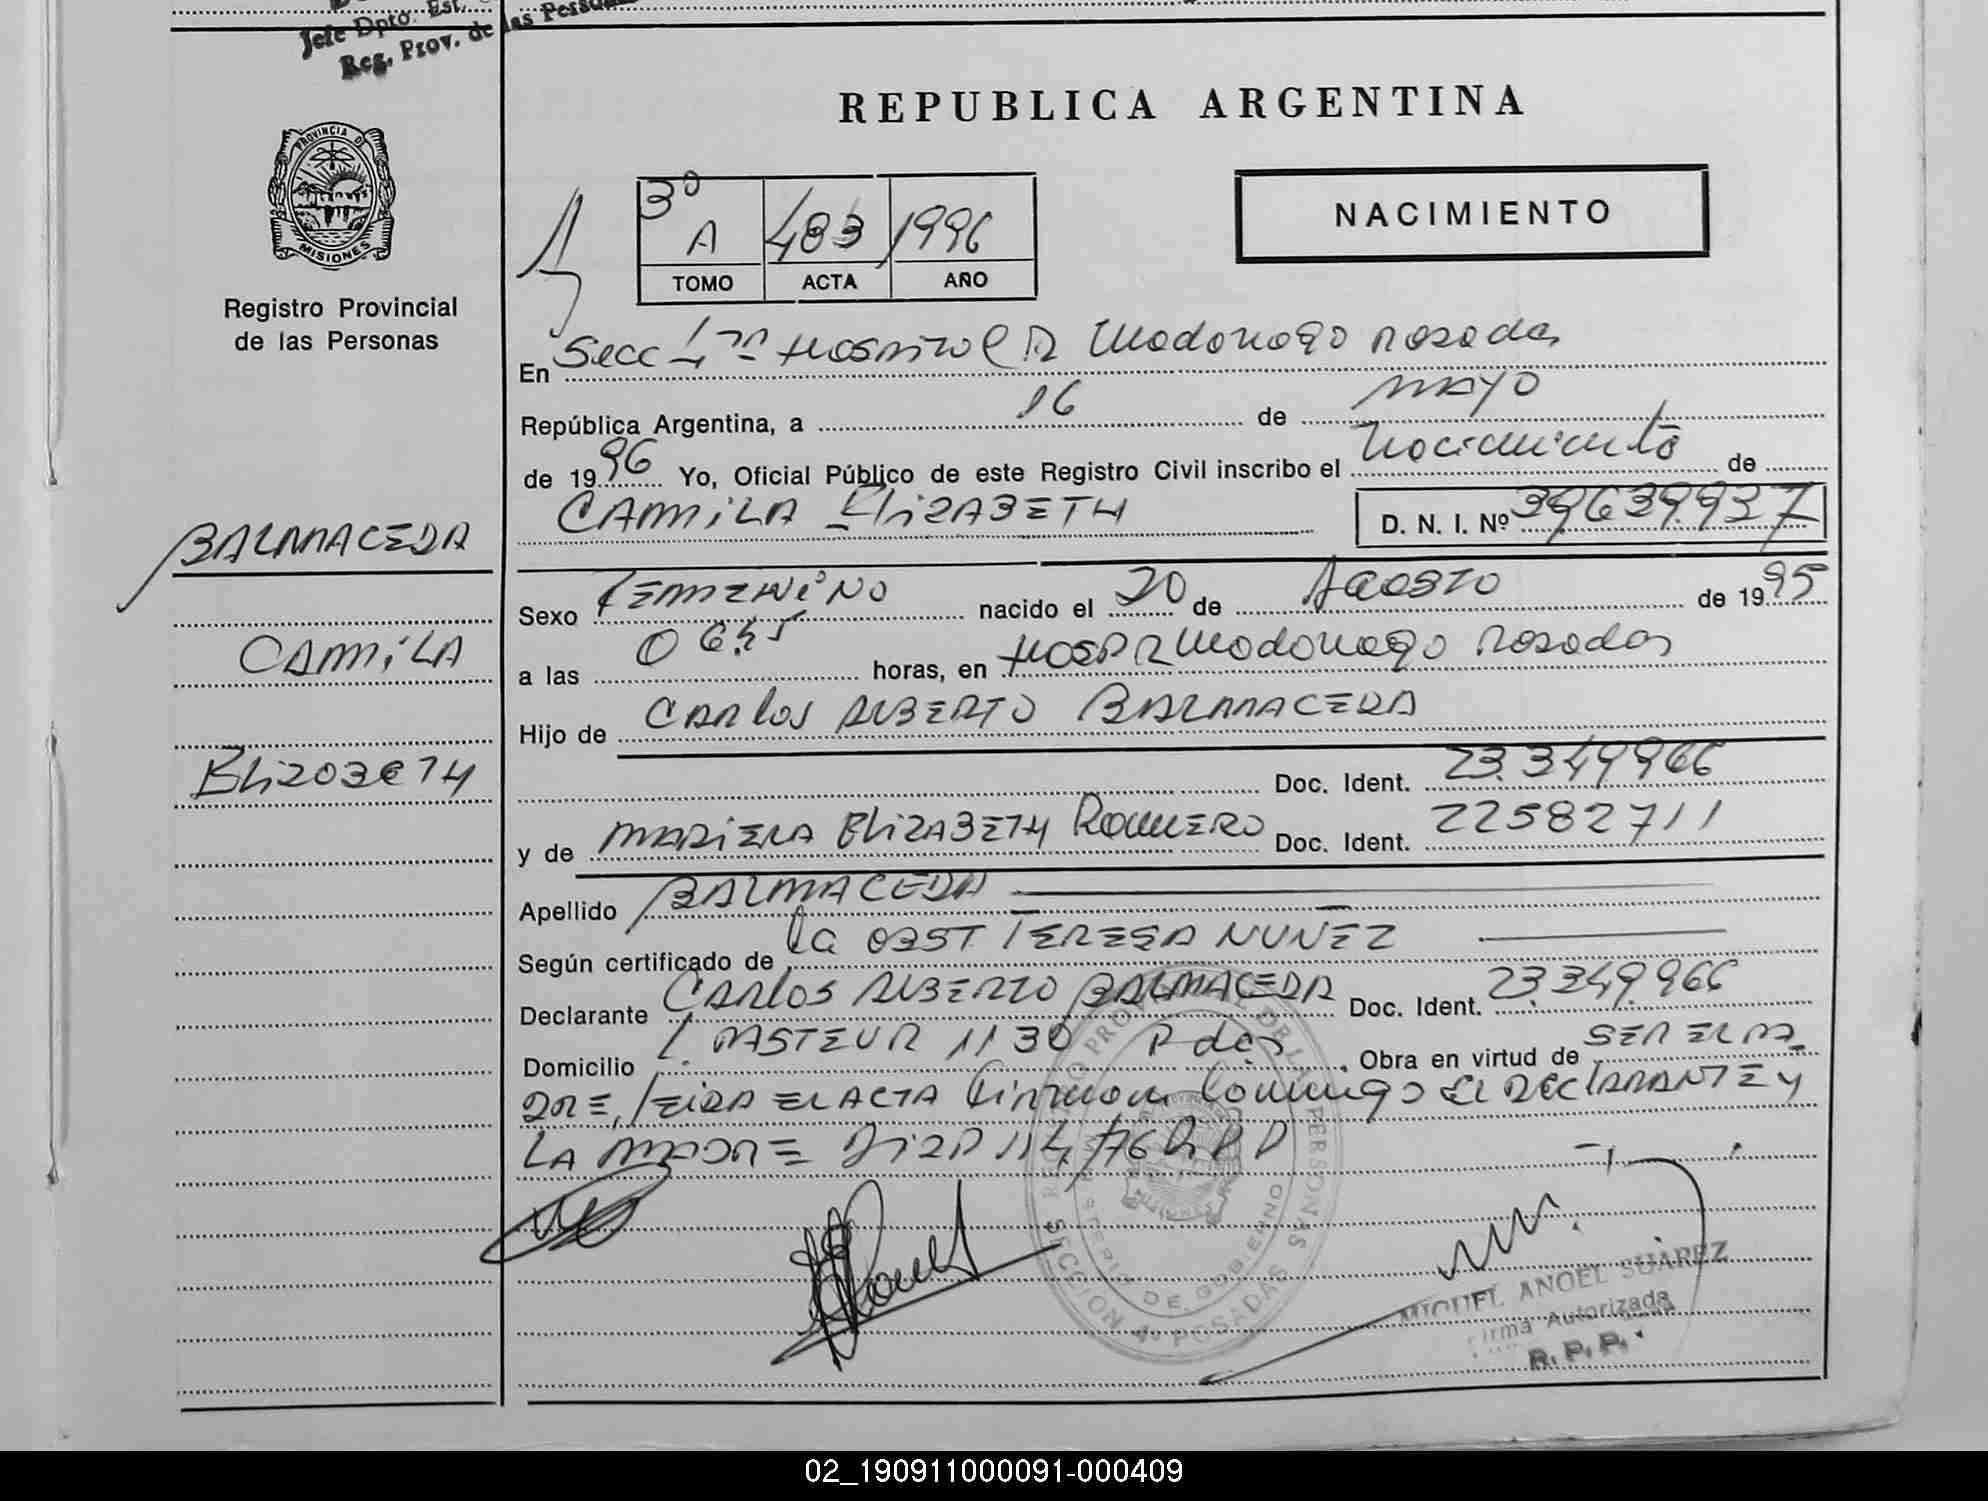 Jefe Dpto. Est.
Reg. Prov. de las Personas
PROVINCIA DE
MISIONES
Registro Provincial
de las Personas
REPUBLICA ARGENTINA
3º
A 483 1996
TOMO ACTA AÑO
NACIMIENTO
En Secc 4ta Hospital Dr Madariaga Posadas
República Argentina, a 16 de MAYO
de 1996 Yo, Oficial Público de este Registro Civil inscribo el Nacimiento de
CAMILA ELIZABETH D. N. I. Nº 39.639.937
BALMACEDA
CAMILA
ELIZABETH
Sexo FEMENINO nacido el 20 de AGOSTO de 1995
a las 06.45 horas, en HOSP DR Madariaga Posadas
Hijo de CARLOS ALBERTO BALMACEDA
Doc. Ident. 23.349.966
y de MARIELA ELIZABETH ROMERO Doc. Ident. 22582711
Apellido BALMACEDA
Según certificado de la OBST TERESA NUÑEZ
Declarante CARLOS ALBERTO BALMACEDA Doc. Ident. 23.349.966
Domicilio L. PASTEUR 1130 Pdas , Obra en virtud de SER EL PA-
DRE, LEIDA EL ACTA Firman Conmigo EL DECLARANTE Y
LA MADRE 114/76
REGISTRO PROVINCIAL DE LAS PERSONAS
SECCION 4º POSADAS
DE GOBIERNO
MISIONES
MIGUEL ANGEL SUAREZ
Firma Autorizada
R. P. P.
02_190911000091-000409